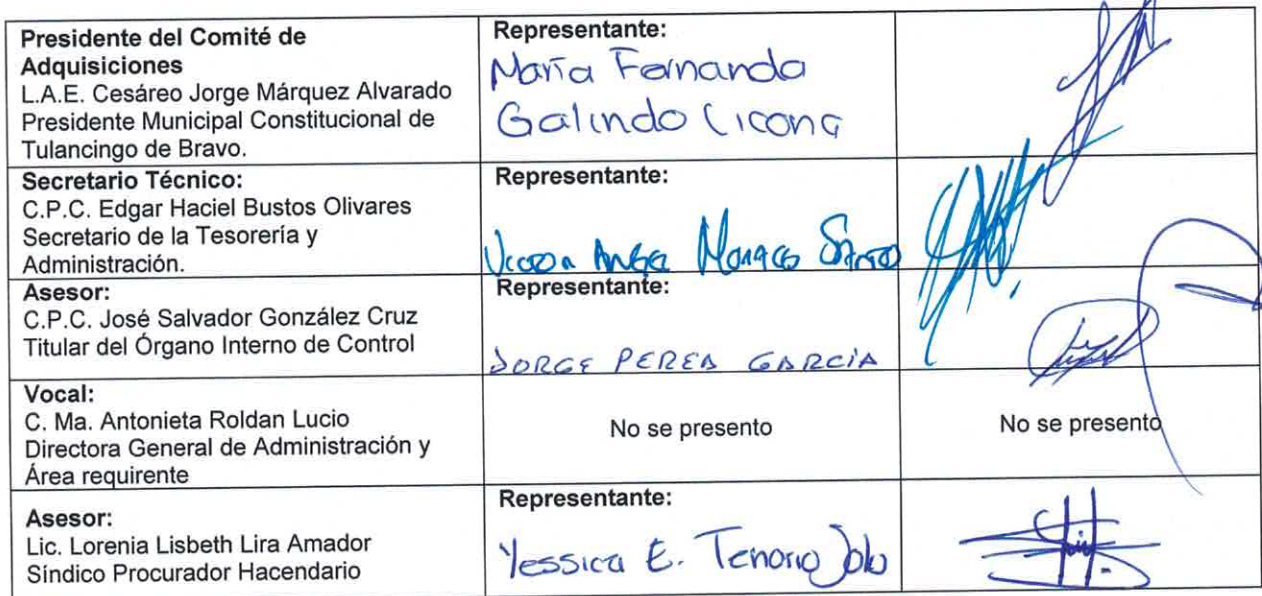 Presidente del Comité de
Adquisiciones
L.A.E. Cesáreo Jorge Márquez Alvarado
Presidente Municipal Constitucional de
Tulancingo de Bravo.
Representante:
María Fernanda
Galindo Licona
Secretario Técnico:
C.P.C. Edgar Haciel Bustos Olivares
Secretario de la Tesorería y
Administración.
Representante:
Victor Angel
Asesor:
C.P.C. José Salvador González Cruz
Titular del Órgano Interno de Control
Representante:
JORGE PEREA GARCÍA
Vocal:
C. Ma. Antonieta Roldan Lucio
Directora General de Administración y
Área requirente
No se presento
No se presento
Asesor:
Lic. Lorenia Lisbeth Lira Amador
Síndico Procurador Hacendario
Representante:
Yessica E. Tenorio